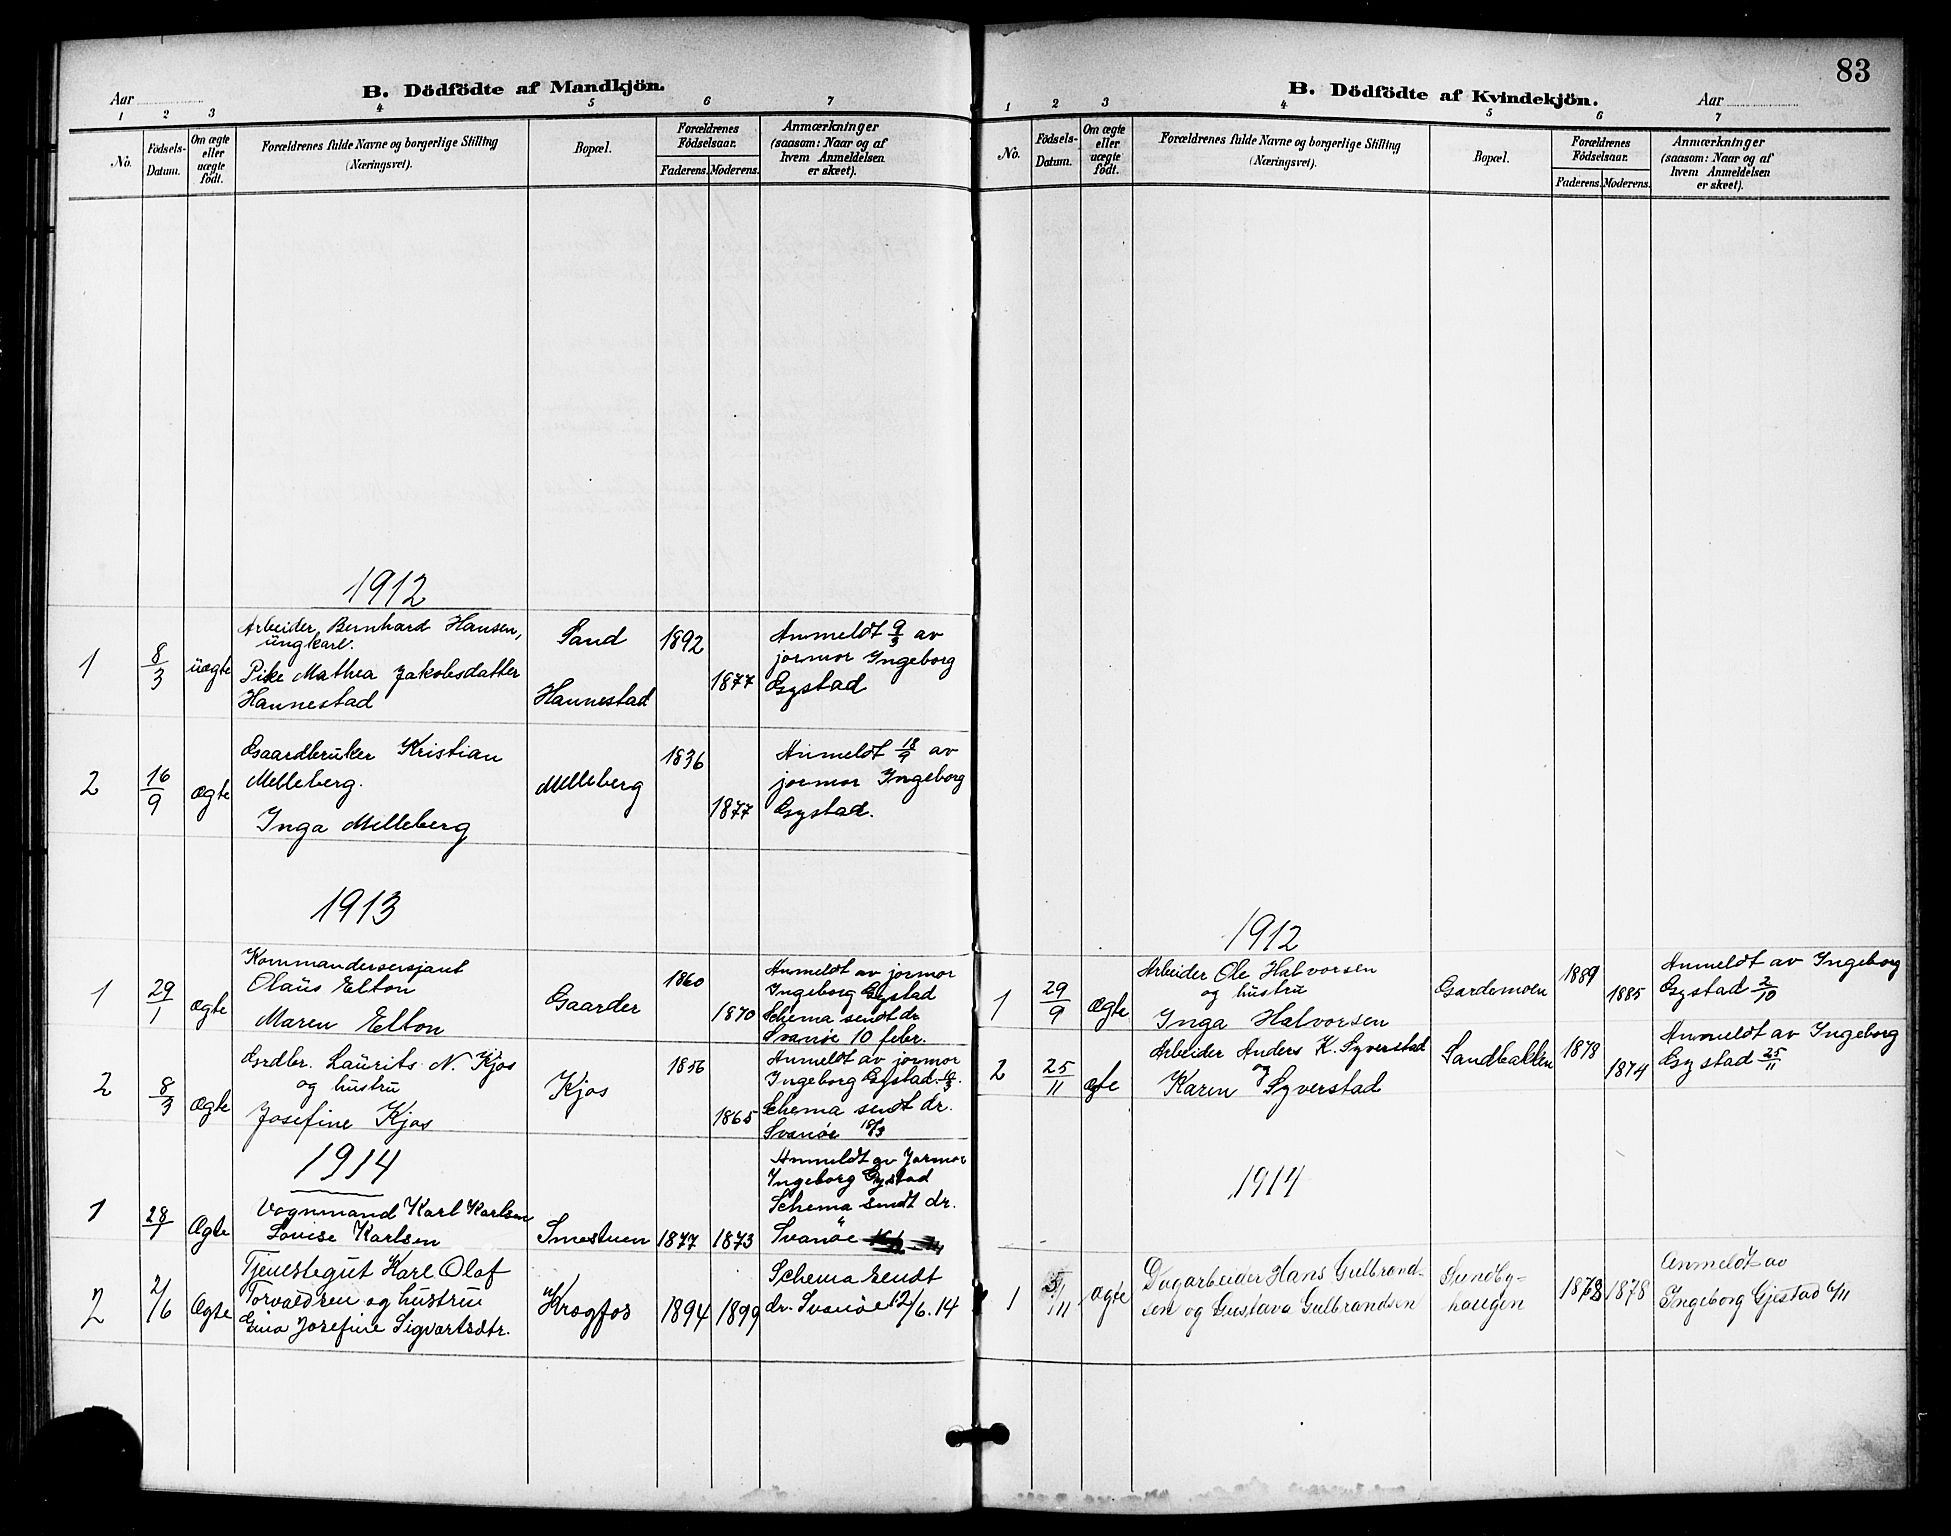 B. Dödfödte af Mandkjön.
Aar
1 2 3 4 5 6 7
No.
Födsels-Datum.
Om ægte eller uægte födt.
Forældrenes fulde Navne og borgerlige Stilling
(Næringsvei).
Bopæl.
Forældrenes Födselsaar.
Faderens. Moderens.
Anmærkninger
(saasom: Naar og af
hvem Anmeldelsen
er skeet).
1912
1 8/3 uægte
Arbeider, Bernhard Hansen,
ungkarl.
Pike Mathea Jakobsdatter
Hannestad
Sand
Hannestad
1892
1877
Anmeldt 9/3 av
jormor Ingeborg
Gystad
2 16/9 ægte
Gaardbruker Kristian
Melleberg.
Inga Melleberg
Melleberg
1836
1877
Anmeldt 18/9 av
jormor Ingeborg
Gystad.
1913
1 29/1 ægte
Kommandersersjant
Olaus Elton
Maren Elton
Gaarder
1860
1870
Anmeldt av jormor
Ingeborg Gystad
Schema sendt dr
Svanøe 10 febr.
2 8/3 ægte
Grdbr. Laurits N. Kjos
og hustru
Josefine Kjos
Kjos
1856
1865
Anmeldt av jormor
Ingeborg Gystad
Schema sendt dr.
Svanøe 18/3
1914
1 28/1 Ægte
Vognmand Karl Karlsen
Lovise Karlsen
Smestuen 1877 1873
Anmeldt av Jormor
Ingeborg Gystad
Schema sendt dr.
Svanøe
2 2/6 Ægte
Tjenestegut Karl Olaf
Torvaldsen og hustru
Gina Josefine Sigvartsdtr.
Krogfos 1894 1899
Schema sendt
dr. Svanøe 12/6.14
83
B. Dödfödte af Kvindekjön.
Aar
1 2 3 4 5 6 7
No.
Födsels-Datum.
Om ægte eller uægte födt.
Forældrenes fulde Navne og borgerlige Stilling
(Næringsvei).
Bopæl.
Forældrenes Födselsaar.
Faderens. Moderens.
Anmærkninger
(saasom: Naar og af
hvem Anmeldelsen
er skeet).
1912
1 29/9 ægte
Arbeider Ole Halvorsen
og hustru
Inga Halvorsen
Gardemoen
1889
1885
Anmeldt av Ingeborg
Gystad 2/10
2 25/11
Arbeider Anders K. Syverstad
og
Karen Syverstad
Sandbakken
1878
1874
Anmeldt av Ingeborg
Gystad 25/11
1914
1 ægte
Dagarbeider Hans Gulbrand-
sen og Gustava Gulbrandsen
Sundby-
haugen
1878
Anmeldt av
Ingeborg Gjestad 6/11